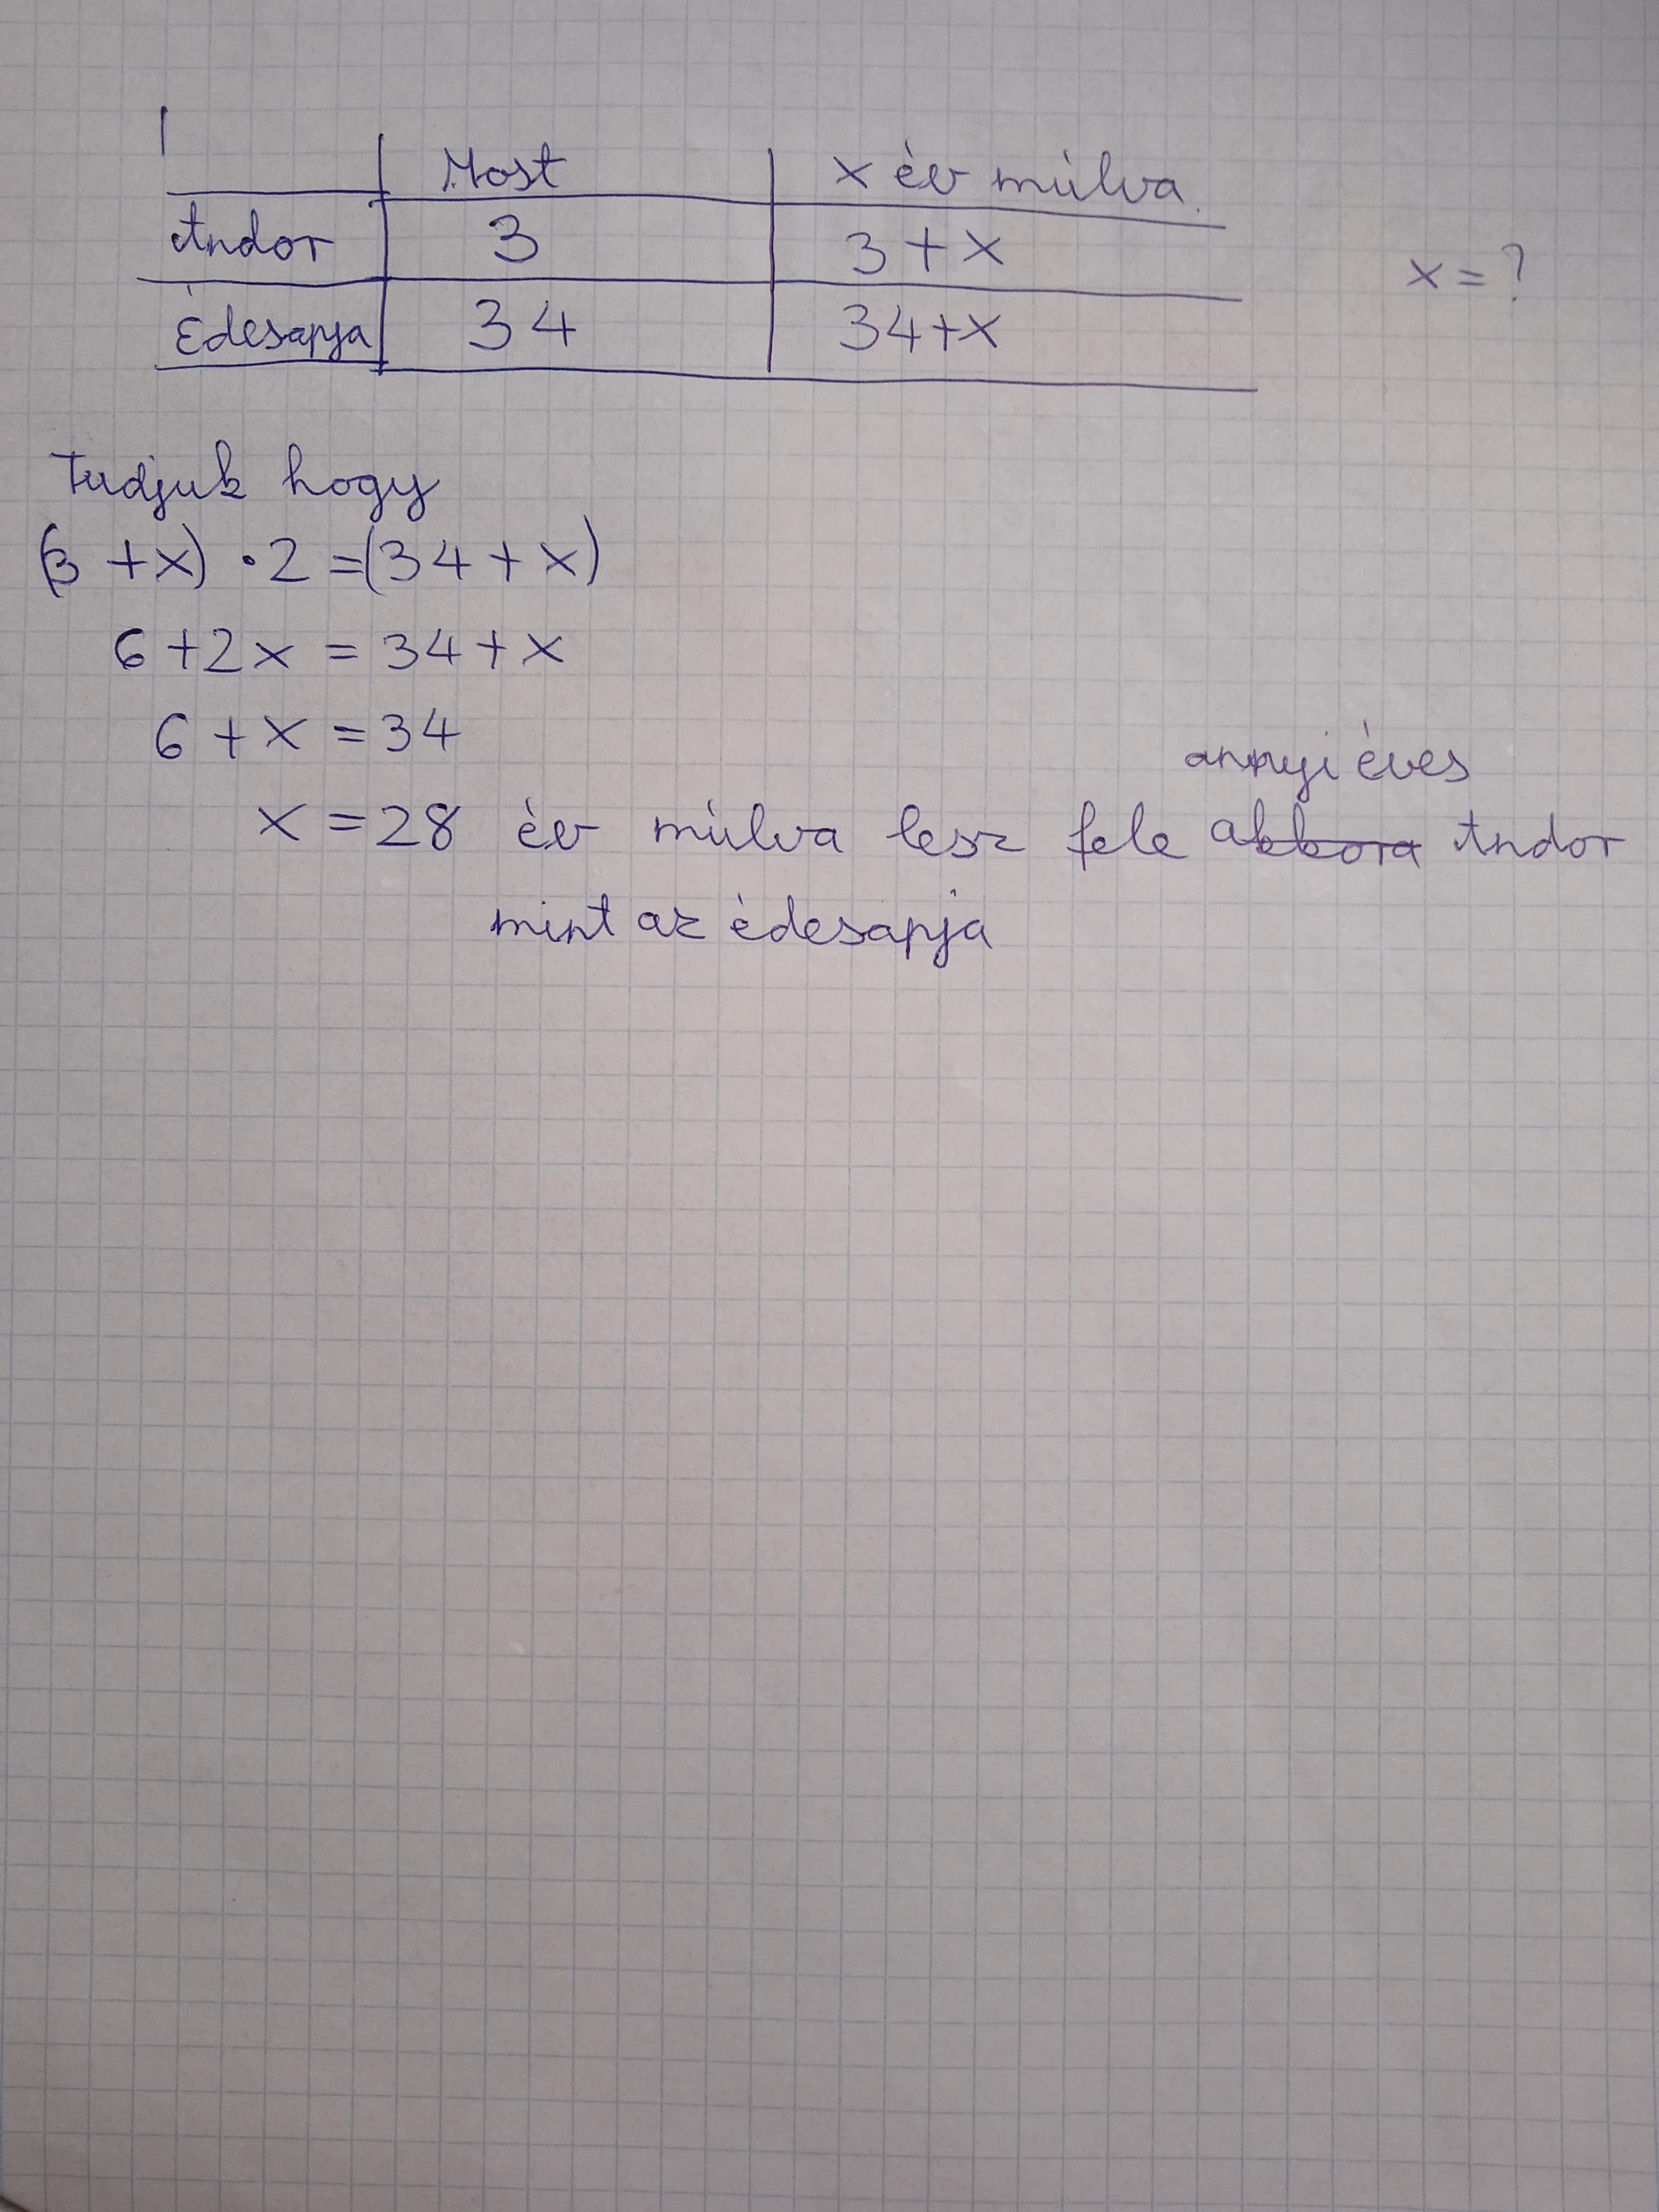 Most x év múlva
Andor 3 3+x
x=?
Édesapja 34 34+x
Tudjuk hogy
(3+x)·2=(34+x)
6+2x=34+x
6+x=34
annyi éves
x=28 év múlva lesz fele akkora Andor
mint az édesapja